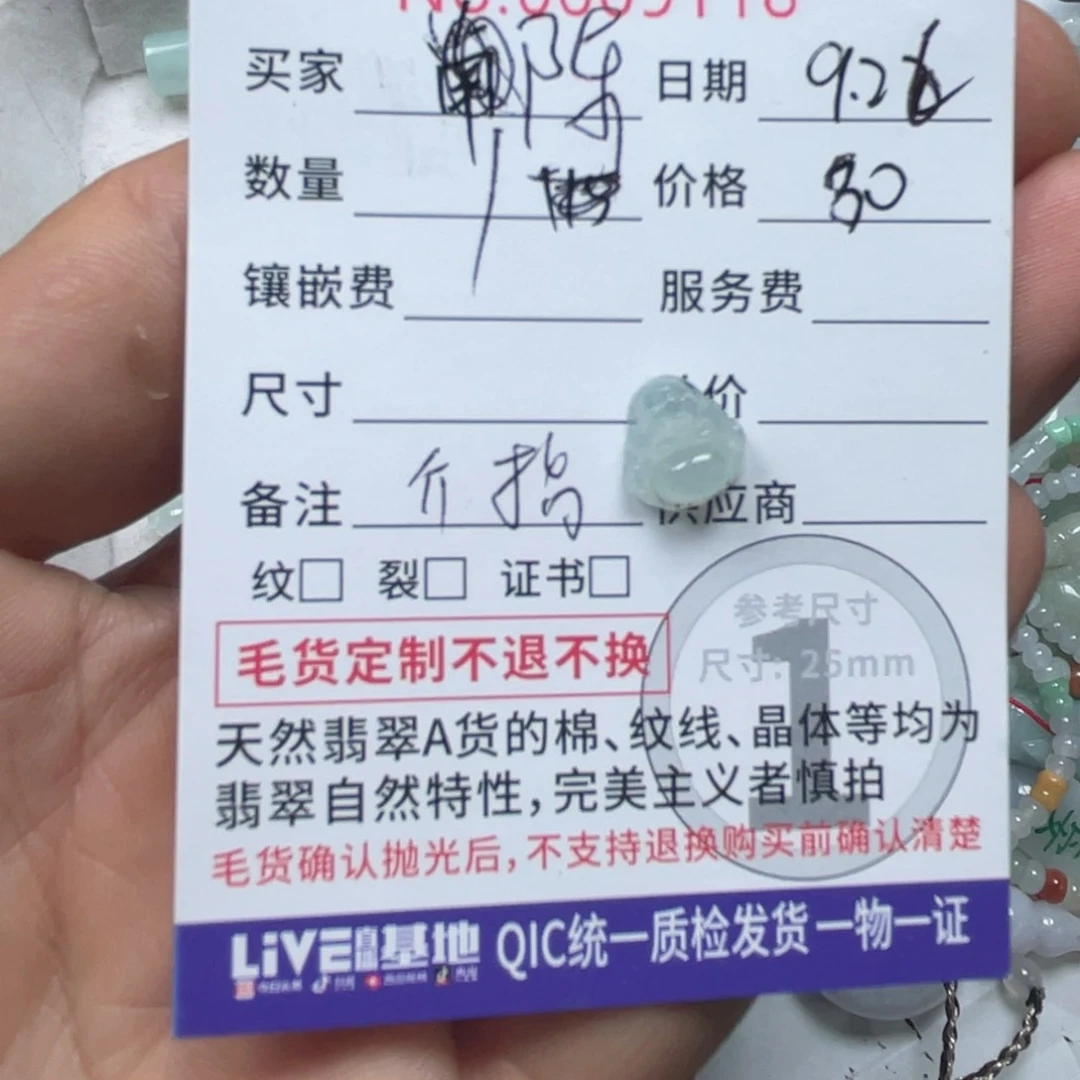 买家 陈 日期 9.26
数量 1 价格 30
镶嵌费 服务费
尺寸 价
备注 供应商
纹□ 裂□ 证书□
参考尺寸
尺寸: 25mm
1
毛货定制不退不换
天然翡翠A货的棉、纹线、晶体等均为
翡翠自然特性,完美主义者慎拍
毛货确认抛光后,不支持退换购买前确认清楚
LIVE直播基地 QIC统一质检发货一物一证